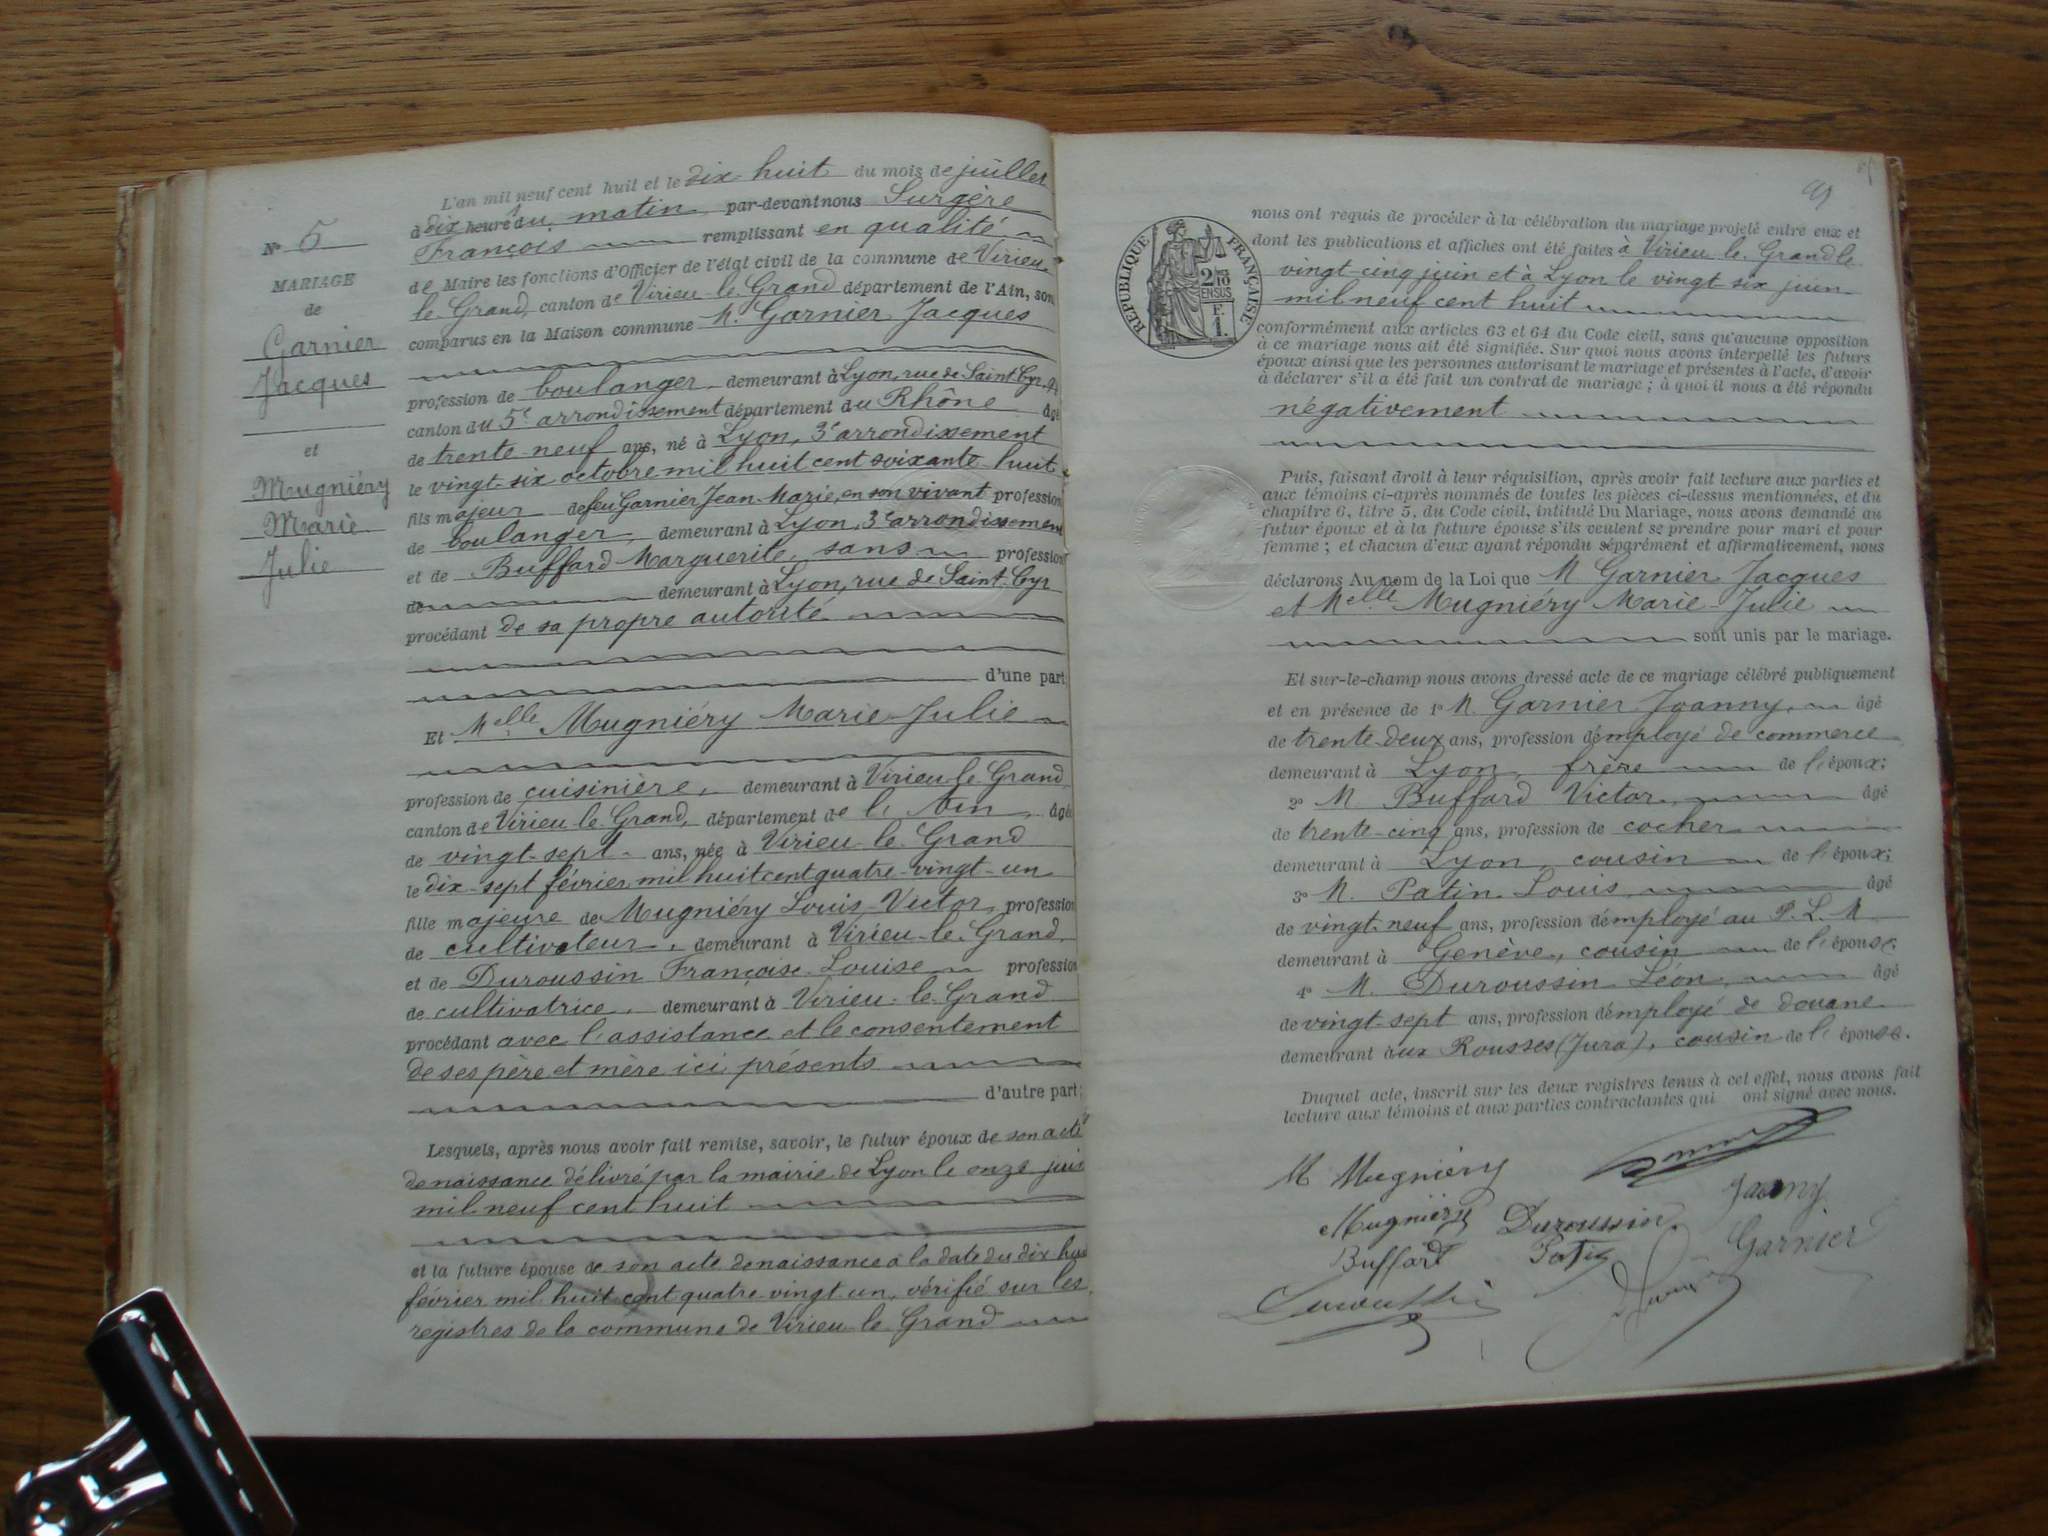 N° 5
MARIAGE
de
Garnier
Jacques
et
Mugniéry
Marie
Julie
L'an mil neuf cent huit et le dix-huit du mois de juillet
à dix heures du matin par-devant nous Surgère
François remplissant en qualité
de Maire les fonctions d'Officier de l'état civil de la commune de Virieu-
le Grand, canton de Virieu-le-Grand département de l'Ain, sont
comparus en la Maison commune M. Garnier Jacques
profession de boulanger demeurant à Lyon, rue de Saint Cyr,
canton du 5e arrondissement département du Rhône âgé
de trente-neuf ans, né à Lyon, 3e arrondissement
le vingt-six octobre mil huit cent soixante-huit
fils majeur de feu Garnier Jean-Marie, en son vivant profession
de boulanger, demeurant à Lyon, 3e arrondissement
et de Buffard Marguerite, sans profession
de demeurant à Lyon, rue de Saint Cyr
procédant de sa propre autorité
d'une part;
Et Melle Mugniéry Marie-Julie
profession de cuisinière, demeurant à Virieu-le-Grand
canton de Virieu-le-Grand, département de l'Ain, âgée
de vingt-sept ans, née à Virieu-le-Grand
le dix-sept février mil huit cent quatre-vingt-un
fille majeure de Mugniéry Louis-Victor, profession
de cultivateur, demeurant à Virieu-le-Grand
et de Duroussin Françoise-Louise profession
de cultivatrice, demeurant à Virieu-le-Grand
procédant avec l'assistance et le consentement
de ses père et mère ici présents
d'autre part;
Lesquels, après nous avoir fait remise, savoir, le futur époux de son acte
de naissance délivré par la mairie de Lyon le onze juin
mil neuf cent huit
et la future épouse de son acte de naissance à la date du dix-huit
février mil huit cent quatre-vingt-un, vérifié sur les
registres de la commune de Virieu-le-Grand
RÉPUBLIQUE FRANÇAISE
2/10 EN SUS
F. 1.
nous ont requis de procéder à la célébration du mariage projeté entre eux et
dont les publications et affiches ont été faites à Virieu-le-Grand le
vingt-cinq juin et à Lyon le vingt-six juin
mil neuf cent huit
conformément aux articles 63 et 64 du Code civil, sans qu'aucune opposition
à ce mariage nous ait été signifiée. Sur quoi nous avons interpellé les futurs
époux ainsi que les personnes autorisant le mariage et présentes à l'acte, d'avoir
à déclarer s'il a été fait un contrat de mariage; à quoi il nous a été répondu
négativement
Puis, faisant droit à leur réquisition, après avoir fait lecture aux parties et
aux témoins ci-après nommés de toutes les pièces ci-dessus mentionnées, et du
chapitre 6, titre 5, du Code civil, intitulé Du Mariage, nous avons demandé au
futur époux et à la future épouse s'ils veulent se prendre pour mari et pour
femme; et chacun d'eux ayant répondu séparément et affirmativement, nous
déclarons Au nom de la Loi que M Garnier Jacques
et Melle Mugniéry Marie-Julie
sont unis par le mariage.
Et sur-le-champ nous avons dressé acte de ce mariage célébré publiquement
et en présence de 1° M. Garnier Joanny, âgé
de trente-deux ans, profession d'employé de commerce
demeurant à Lyon, frère de l'époux;
2° M. Buffard Victor, âgé
de trente-cinq ans, profession de cocher
demeurant à Lyon, cousin de l'époux;
3° M. Patin Louis, âgé
de vingt-neuf ans, profession d'employé au P. L. M
demeurant à Genève, cousin de l'épouse;
4° M. Duroussin Léon, âgé
de vingt-sept ans, profession d'employé de douane
demeurant aux Rousses (Jura), cousin de l'épouse.
Duquel acte, inscrit sur les deux registres tenus à cet effet, nous avons fait
lecture aux témoins et aux parties contractantes qui ont signé avec nous.
M Mugniéry
Joanny
Mugniéry Duroussin
Garnier
Buffard Patin
Duroussin